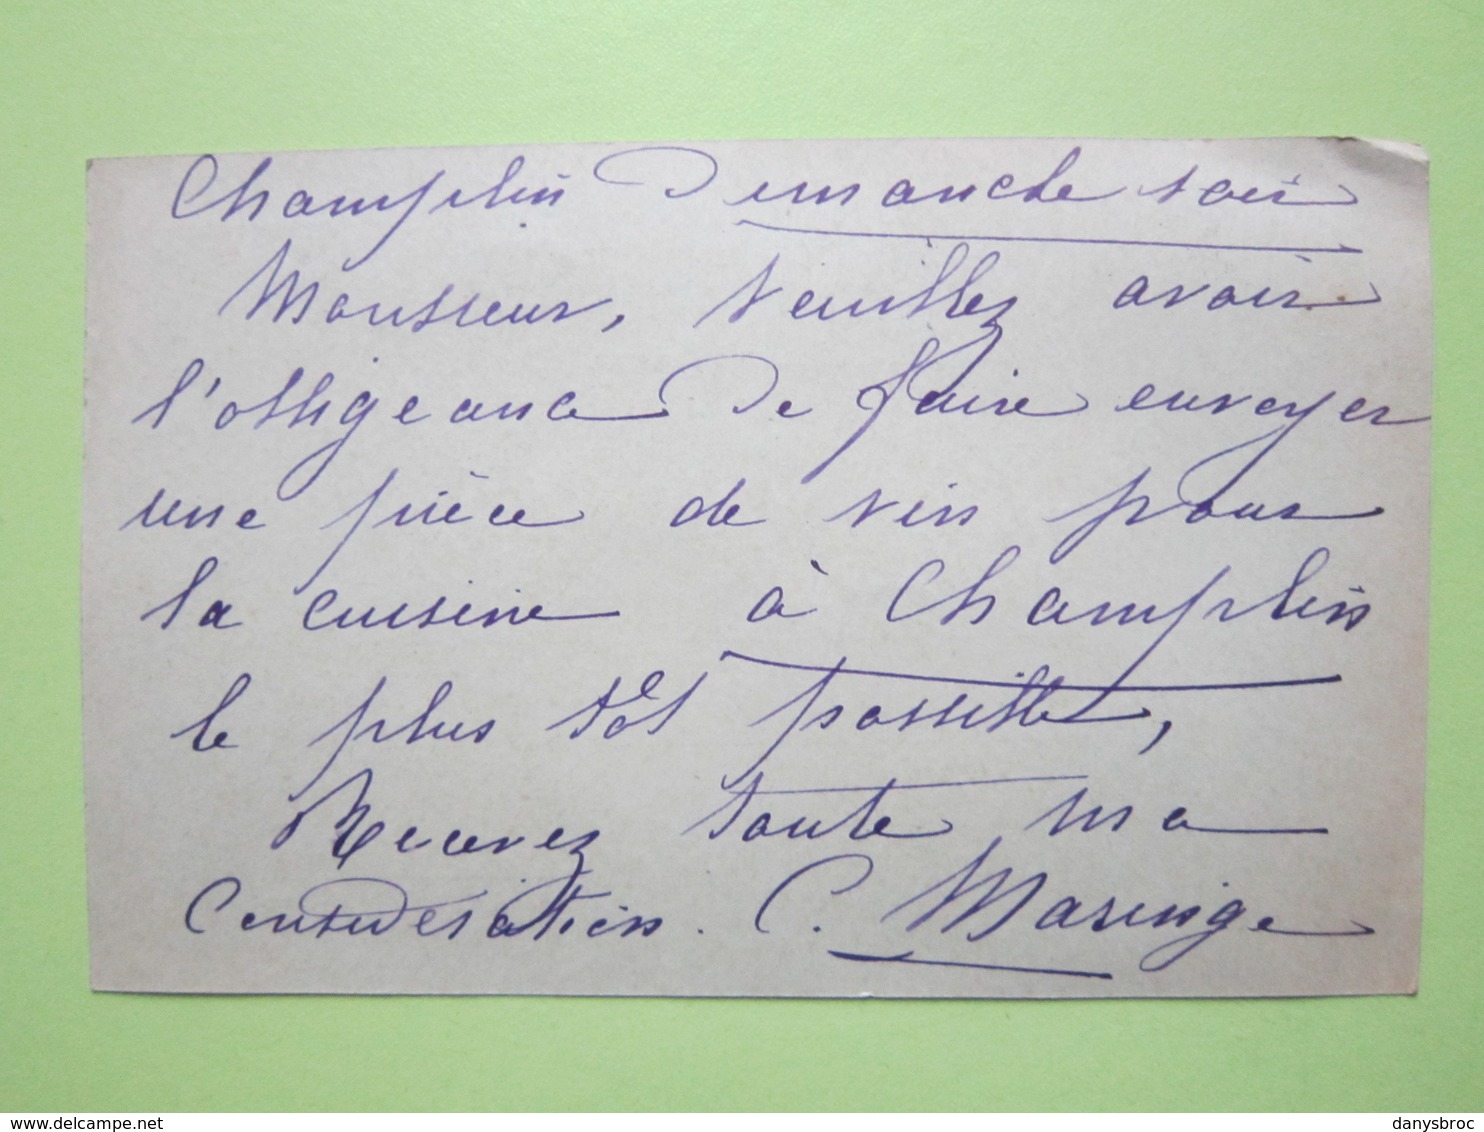 Champlin Dimanche soir
Monsieur, veuillez avoir
l'obligeance de faire envoyer
une pièce de vin pour
la cuisine à Champlin
le plus tôt possible,
Recevez toute ma
Considération. C. Masinge
delcampe.net
danysbroc